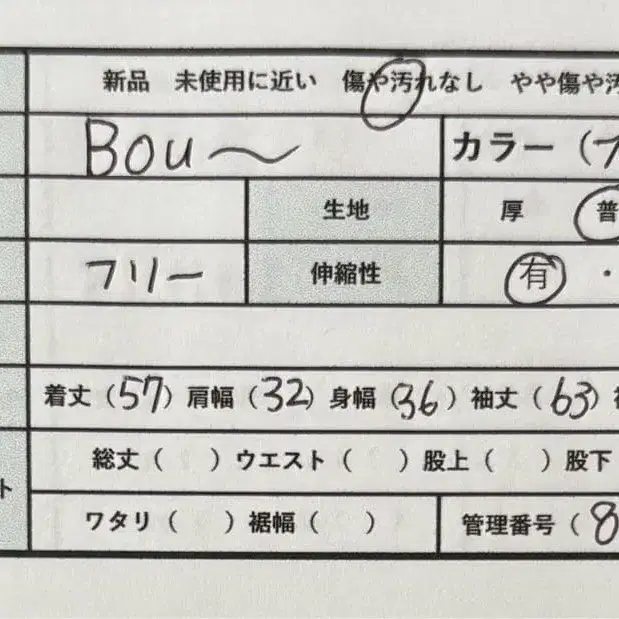 新品 未使用に近い 傷や汚れなし やや傷や汚
Bou〜 カラー（
生地 厚 普
フリー 伸縮性 有 ・
着丈（57）肩幅（32）身幅（36）袖丈（63）
総丈（ ）ウエスト（ ）股上（ ）股下
ト
ワタリ（ ）裾幅（ ） 管理番号（8